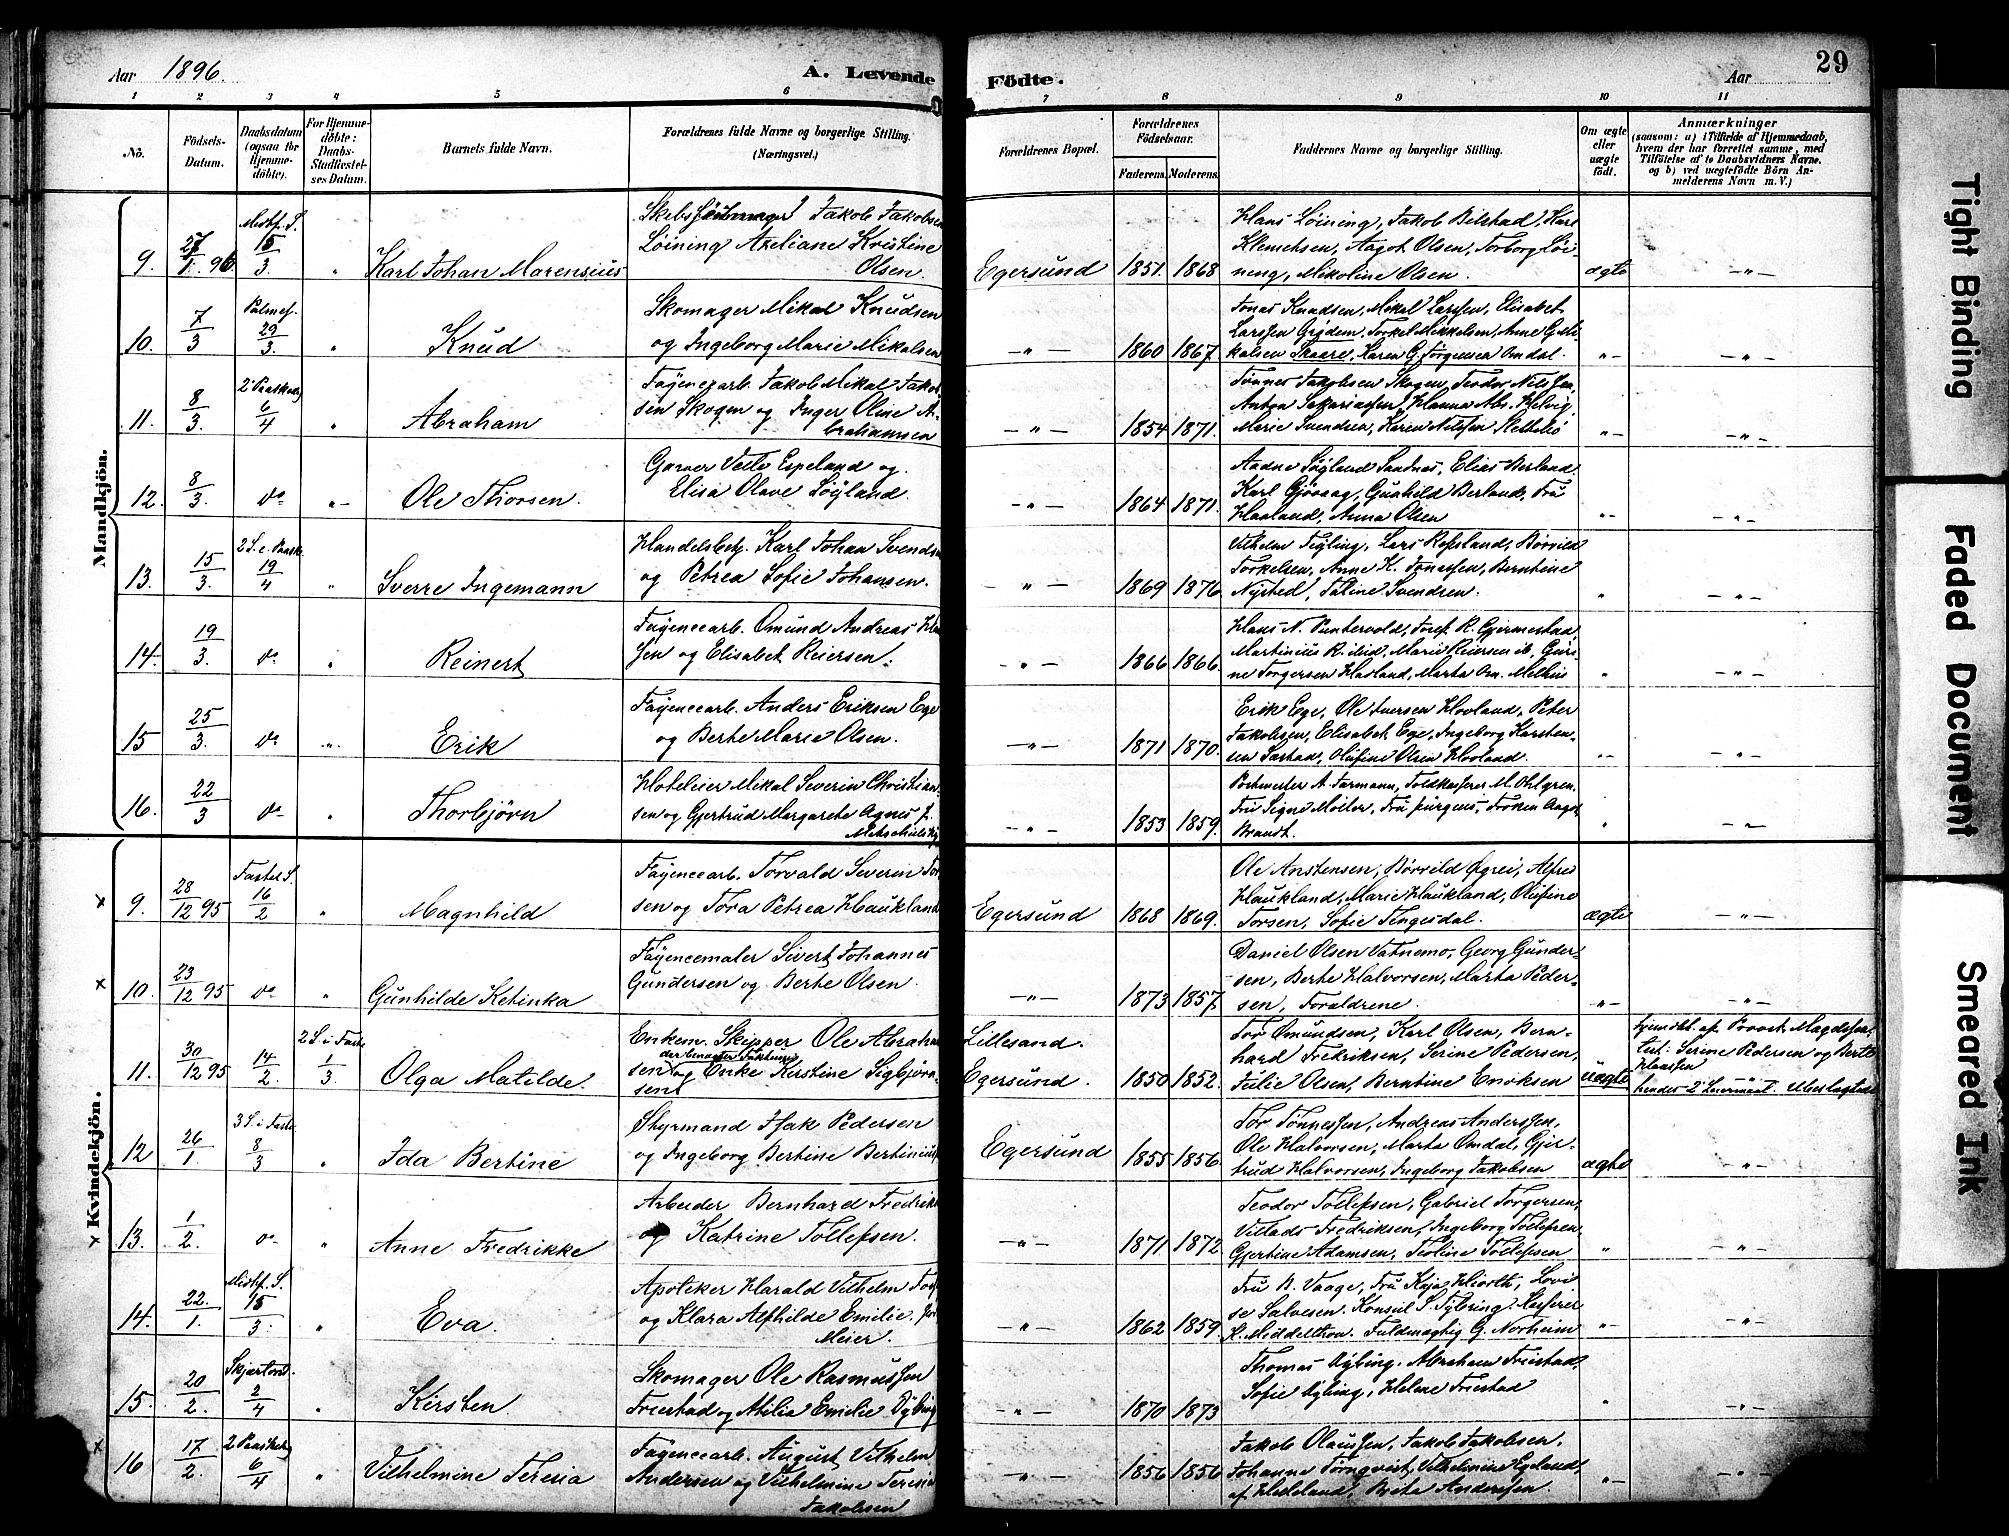 Aar 1896.
A. Levende Födte.
Aar
29
1 2 3 4 5 6 7 8 9 10 11
No.
Födsels-Datum.
Daabsdatum (ogsaa for Hjemmedöbte).
For Hjemmedöbte: Daabs-Stadfæstelses Datum.
Barnets fulde Navn.
Forældrenes fulde Navne og borgerlige Stilling. (Næringsvei.)
Forældrenes Bopæl.
Forældrenes Födselsaar.
Faderens. Moderens.
Faddernes Navne og borgerlige Stilling.
Om ægte eller uægte födt.
Anmærkninger
(saasom: a) i Tilfælde af Hjemmedaab, hvem der har forrettet samme, med Tilföielse af to Daabsvidners Navne. og b) ved uægtefödte Börn Anmelderens Navn m. V.)
Mandkjön.
9. 27/1 96 Midf. S. 15/3. " Karl Johan Marensius
Jakob Jakobsen
Löining Axeliane Kristine
Olsen.
Egersund 1851. 1868
Hans Löining, Jakob Bilstad,
Klemetsen, Aagot Olsen, Torborg Löining, Mikoline Olsen.
ægte — " —
10. 7/3 Palmes. 29/3. " Knud
Skomager Mikal Knudsen
og Ingeborg Marie Mikalsen
— " — 1860 1867.
Jonas Knudsen, Mikal Larssen, Elisabet
Larssen Grödem, Torkel Mikkelsen, Anne G. Mikalsen Skaare, Karen G. Jörgensen Omdal.
" — — " —
11. 8/3. 2 Paaskedg 6/4 " Abraham
Fayencearb. Jakob Mikal Jakobsen Skogen og Inger Oline Abrahamsen
— " — 1854 1871.
Tönnes Jakobsen Skogen, Teodor Nilssen,
Anton Sakariassen, Hanna Abr. Helvig,
Marie Svendsen, Karen Nilssen
" — — " —
12. 8/3. do " — Ole Thorsen.
Garver Espeland og
Elisa Olave Söyland.
— " — 1864 1871.
Aadne Söyland Sandnes, Elias Berland
Karl Gjövaag, Gunhild Berland, Fru
Haaland, Anna Olsen
" — — " —
13. 15/3. 2 S. e. Paaske 19/4 " Sverre Ingemann
Handelsbetj. Karl Johan Svendsen
og Petrea Sofie Johansen.
— " — 1869 1876
Vilhelm Feyling, Lars Rossland, Börvild
Torkelsen, Anne K. Jonassen, Berntine
Nysted, Taline Svendsen.
" — " —
14. 19/3. do " Reinert
Fayencearb. Omund Andreas
og Elisabet Reiersen.
— " — 1866 1866.
Hans N. Puntervold, Josef R. Gjermestad,
Martinius R. ibid, Marie Reiersen ib, Gurine Torgersen Hasland, Marta Om. Melhus
" — " —
15 25/3. do " — Erik
Fayencearb. Anders Eriksen Ege
og Berte Marie Olsen.
— " — 1871 1870.
Erik Ege, Ole Iversen Hovland, Peter
Jakobsen, Elisabet Ege, Ingeborg Karstensen Sæstad, Olufine Olsen Hovland.
" — — " —
16. 22/3 do " Thorbjörn
Hoteleier Mikal Severin Christiansen og Gjertrud Margarete Agnes J.
— " — 1853 1859.
Postmester A. Tormann, Toldkasserer M. Ohlgren,
Fru Signe Möller, Fru Jürgens, Fröken Aagot
Brandt.
" — " —
Kvindekjön.
x 9. 28/12 95 Fastel S. 16/2 " Magnhild
Fayencearb. Torvald Severin Torsen og Tora Petrea Haukland
Egersund 1868 1869.
Ole Anstensen, Börvild Ögrei, Alfred
Haukland, Marie Haukland, Olufine
Torsen, Sofie Tengesdal.
ægte — " —
x 10. 23/12 95 do " Gunhilde Ketinka
Fayencemaler Sivert Johannes
Gundersen og Berte Olsen.
— " — 1873 1857.
Daniel Olsen Vatnemo, Georg Gundersen, Berte Halvorsen, Marta Pedersen, Forældrene.
" — — " —
11. 30/12 95 14/2. 2 S. i Faste 1/3 Olga Matilde.
Enkem. Skipper Ole Abrahamsen og Enke Kirstine Sigbjörnsen
Lillesand.
Egersund. 1850 1852.
Tor Omundsen, Karl Olsen, Bernhard Fredriksen, Serine Pedersen,
Julie Olsen, Berntine Eriksen
uægte
hjemdöbt af Provst Magdesen
test: Serine Pedersen og Berte
Klaassen
hendes 2det Leiermaal. Ubeslægtede
12 26/1. 3 S. i Faste 8/3 " Ida Bertine
Styrmand Isak Pedersen
og Ingeborg Bertine
Egersund 1855 1856.
Tor Tönnessen, Andreas Anderssen,
Ole Halvorsen, Marta Omdal, Gjertrud Halvorsen, Ingeborg Jakobsen
ægte — " —
13. 1/2. do " Anne Fredrikke
Arbeider Bernhard Fredriksen
og Katrine Tollefsen.
— " — 1871 1872.
Teodor Tollefsen, Gabriel Torgersen,
Villads Fredriksen, Ingeborg Tollefsen,
Gjertine Adamsen, Teoline Tollefssen
" — " —
14. 22./1. Midf. S. 15/3. " Eva.
Apoteker Harald Vilhelm
og Klara Alfhilde Emilie
Meier.
— " — 1862 1859.
Fru N. Vaage, Fru Kaja Hiorth, Lovise Salvesen. Konsul S. Sybring, Kasserer
K. Middelthon. Fuldmægtig G. Norheim
" — — " —
15. 20/2. Skjærtorsd. 2/4 " Kirsten
Skomager Ole Rasmussen
Friestad og Atilia Emilie Dybing
— " — 1870 1873
Thomas Dybing, Abraham Friestad,
Sofie Dybing, Helene Friestad
" — " —
x 16 17/2. 2 Paaskedg 6/4 " Vilhelmine Teresia
Fayencearb. August Vilhelm
Andersen og Vilhelmine Teresia
Jakobsen
— " — 1856 1856
Jakob Olaussen, Jakob Jakobsen,
Johanne Törnqvist, Vilhelmine Egeland,
af Helleland, Berta Anderssen
" — — " —
Tight Binding
Faded Document
Smeared Ink